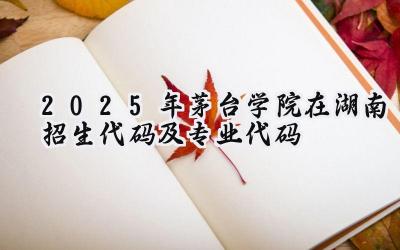 2025年茅台学院在湖南
招生代码及专业代码